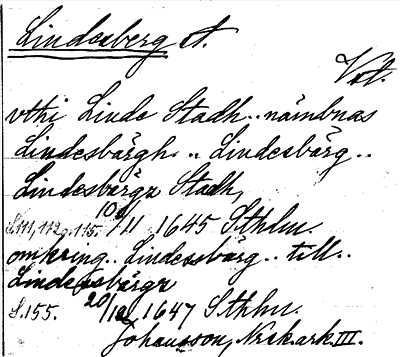 Lindesberg st.
Vstl.
vthi Linde Stadh.. nämbnas
Lindesbärgh.. Lindesbärg..
Lindesbärgz Stadh,
S.111,112o.115. 10/11 1645 Sthlm.
omkring.. Lindessbärg.. till..
Lindesbärgz
S.155. 20/12 1647 Sthlm.
Johansson, Norak.ark III.